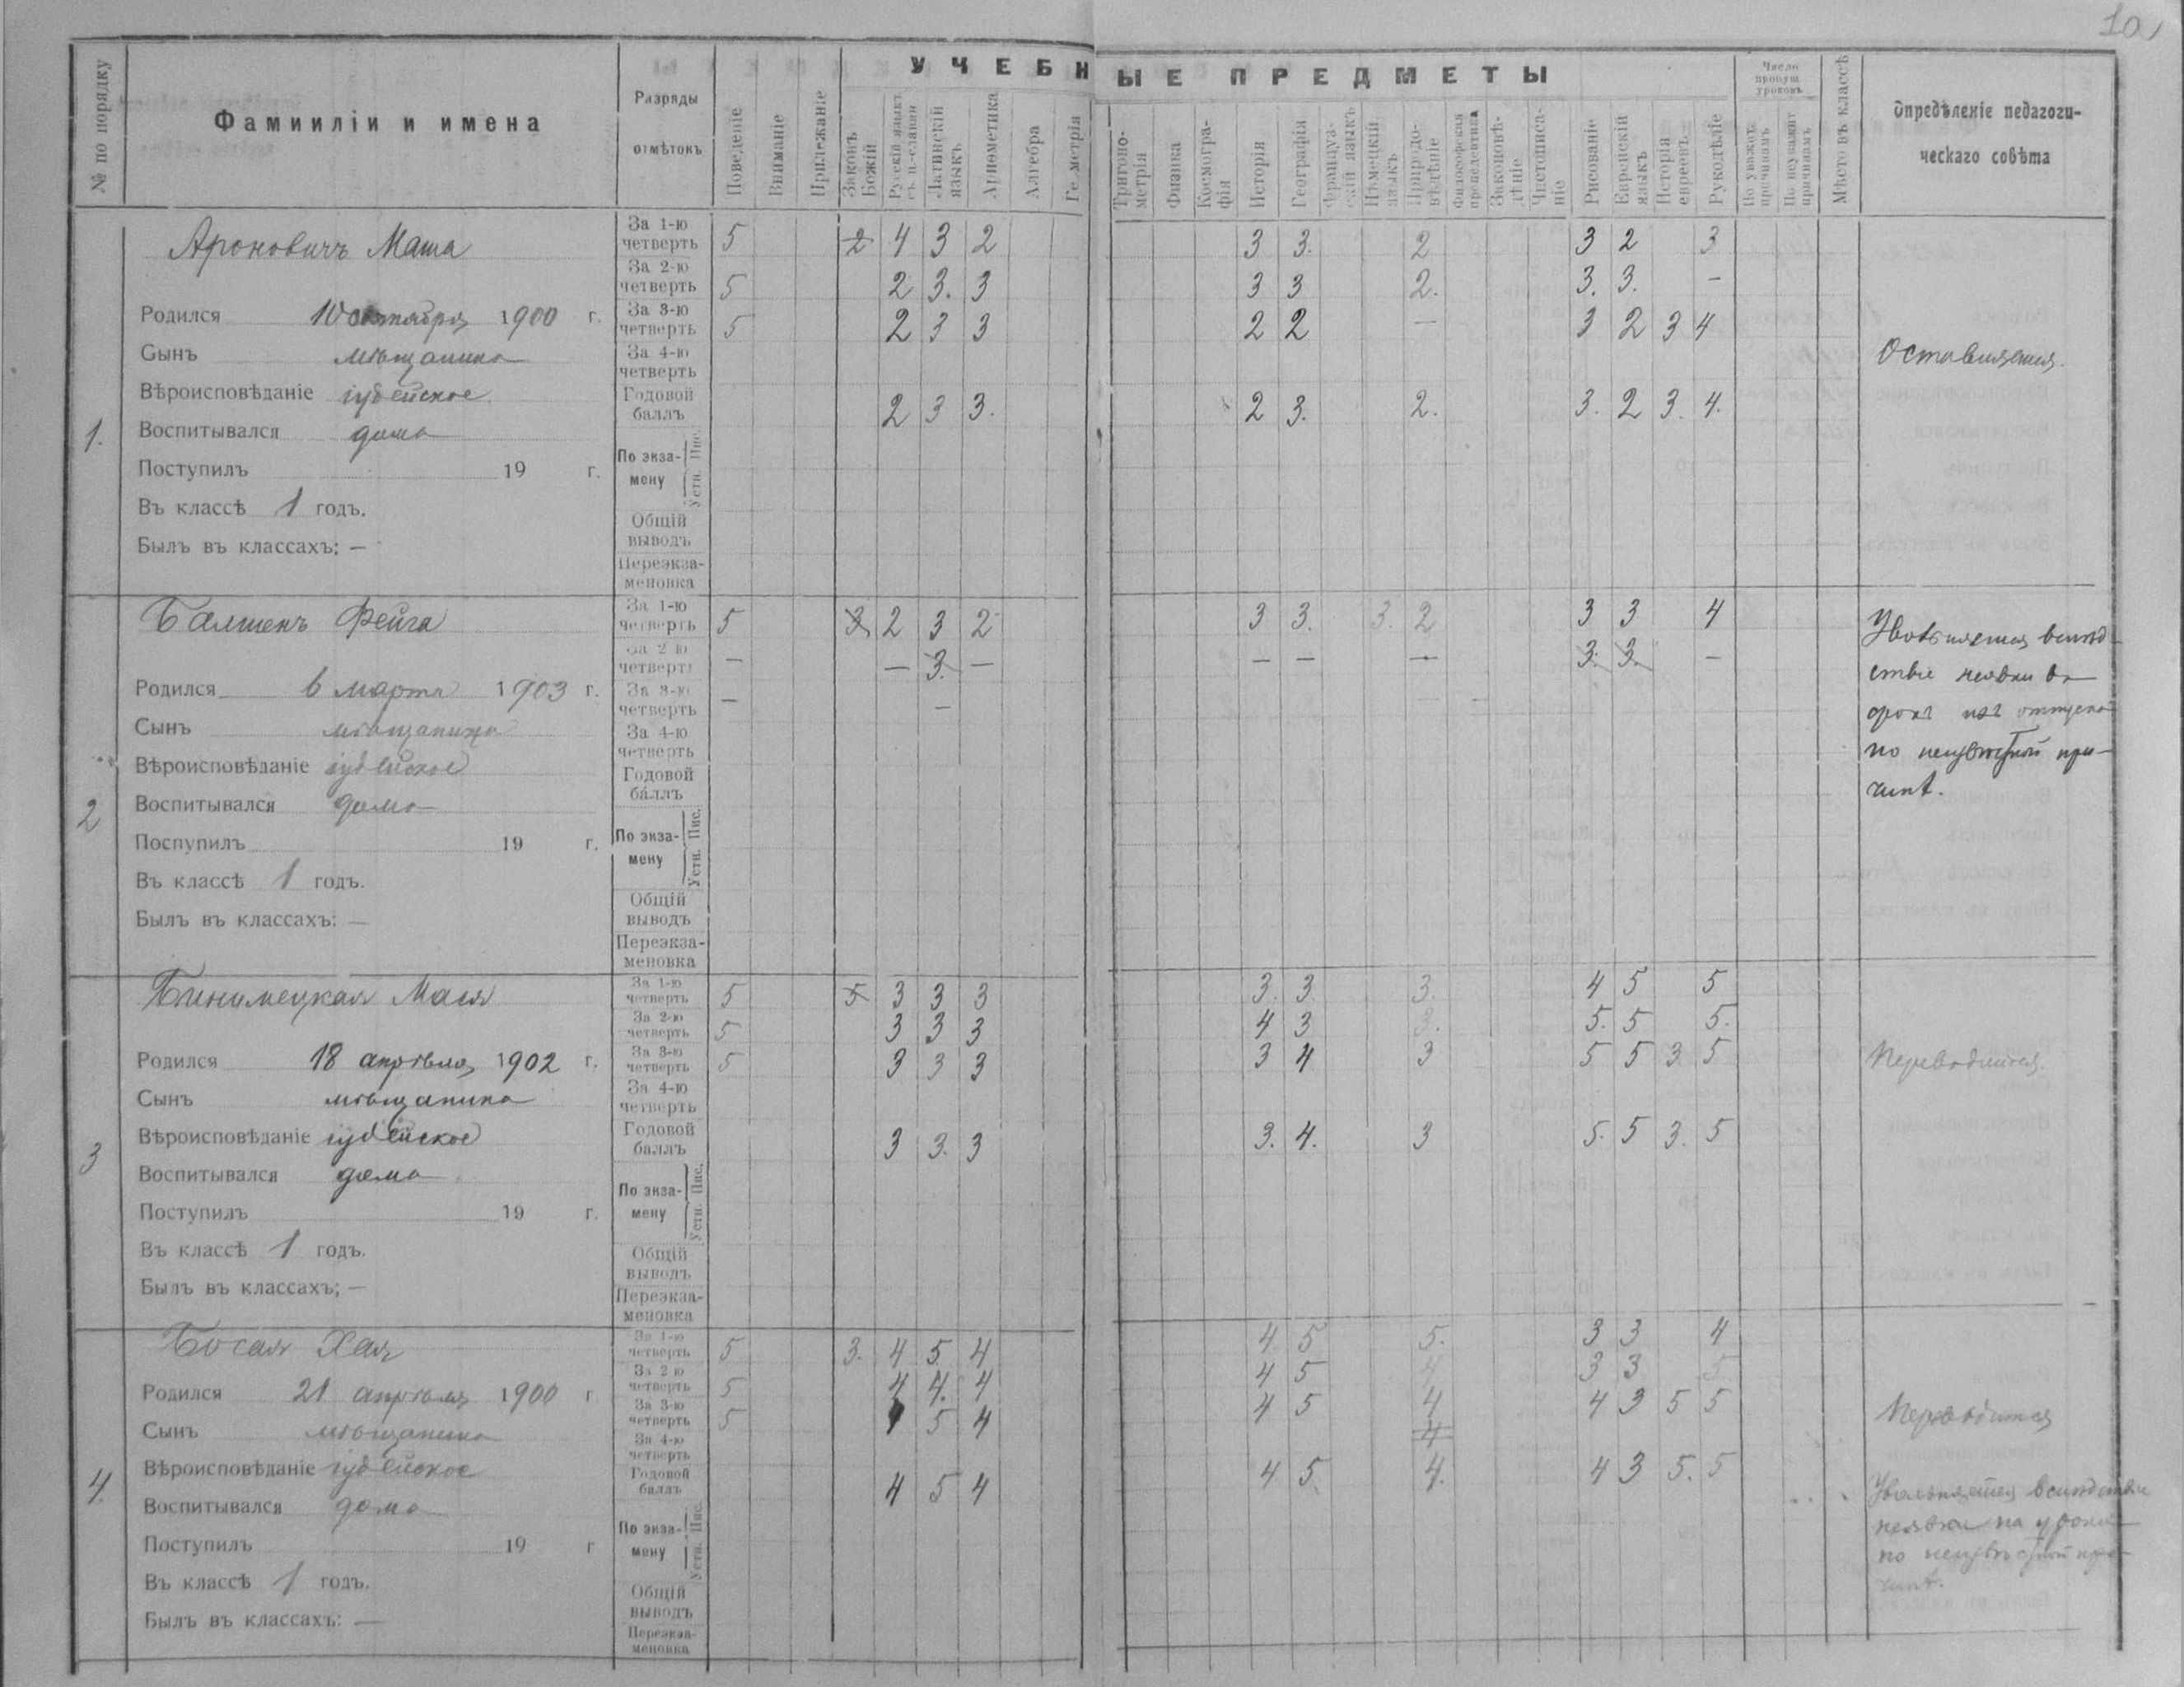 10
УЧЕБНЫЕ ПРЕДМЕТЫ
№ по порядку
Фамииліи и имена
Разряды
отмѣтокъ
Поведеніе
Вниманіе
Прилежаніе
Законъ
Божій
Русскій языкъ
съ ц.-славян
Латинскій
языкъ
Ариѳметика
Алгебра
Геометрія
Тригоно-
метрія
Физика
Космогра-
фія
Исторія
Географія
Француз-
скій языкъ
Нѣмецкій
языкъ
Природо-
вѣдѣніе
Философская
пропедевтика
Законовѣ-
дѣніе
Чистописа-
ніе
Рисованіе
Еврейскій
языкъ
Исторія
евреевъ
Рукодѣліе
Число
пропущ.
уроковъ
По уважит.
причинамъ
По неуважит
причинамъ
Мѣсто въ классѣ
Опредѣленіе педагоги-
ческаго совѣта
1.
Ароновичъ Маша
Родился 10 октября 1900 г.
Сынъ мѣщанина
Вѣроисповѣданіе іудейское
Воспитывался дома
Поступилъ 19 г.
Въ классѣ 1 годъ.
Былъ въ классахъ: —
За 1-ю четверть 5 2 4 3 2 3 3. 2 3 2 3
За 2-ю четверть 5 2 3. 3 3 3 2. 3. 3. –
За 3-ю четверть 5 2 3 3 2 2 — 3 2 3 4
За 4-ю четверть
Годовой баллъ 2 3 3. 2 3. 2. 3. 2 3. 4.
По экза-
мену
Пис.
Устн.
Общій выводъ
Переэкза-
меновка
Оставляется.
2
Балшенъ Фейга
Родился 6 марта 1903 г.
Сынъ мѣщанина
Вѣроисповѣданіе іудейское
Воспитывался дома
Поступилъ 19 г.
Въ классѣ 1 годъ.
Былъ въ классахъ: —
За 1-ю четверть 5 3 2 3 2 3 3. 3. 2 3 3 4
За 2-ю четверть — — 3. — — — — 3. 3. –
За 3-ю четверть — —
За 4-ю четверть
Годовой баллъ
По экза-
мену
Пис.
Устн.
Общій выводъ
Переэкза-
меновка
Увольняется вслѣд-
ствіе неявки въ
срокъ изъ отпуска
по неизвѣстной при-
чинѣ.
3
Бинимецкая Мася
Родился 18 апрѣля 1902 г.
Сынъ мѣщанина
Вѣроисповѣданіе іудейское
Воспитывался дома
Поступилъ 19 г.
Въ классѣ 1 годъ.
Былъ въ классахъ; —
За 1-ю четверть 5 5 3 3 3 3. 3 3. 4 5 5
За 2-ю четверть 5 3 3 3 4 3 3. 5. 5 5.
За 3-ю четверть 5 3 3 3 3 4 3 5 5 3 5
За 4-ю четверть
Годовой баллъ 3 3. 3 3. 4. 3 5. 5 3. 5
По экза-
мену
Пис.
Устн.
Общій выводъ
Переэкза-
меновка
Переводится.
4.
Босая Хая
Родился 21 апрѣля 1900 г
Сынъ мѣщанина
Вѣроисповѣданіе іудейское
Воспитывался дома
Поступилъ 19 г
Въ классѣ 1 годъ.
Былъ въ классахъ: —
За 1-ю четверть 5 3. 4 5 4 4 5 5. 3 3 4
За 2 ю четверть 5 4 4. 4 4 5 4 3 3 5
За 3-ю четверть 5 4 5 4 4 5 4 4 3 5 5
За 4-ю четверть 4
Годовой баллъ 4 5 4 4 5. 4. 4 3 5. 5
По экза-
мену
Пис.
Устн.
Общій выводъ
Переэкза-
меновка
Переводится
Увольняется вслѣдствіе
неявки на уроки
по неизвѣстной при-
чинѣ.